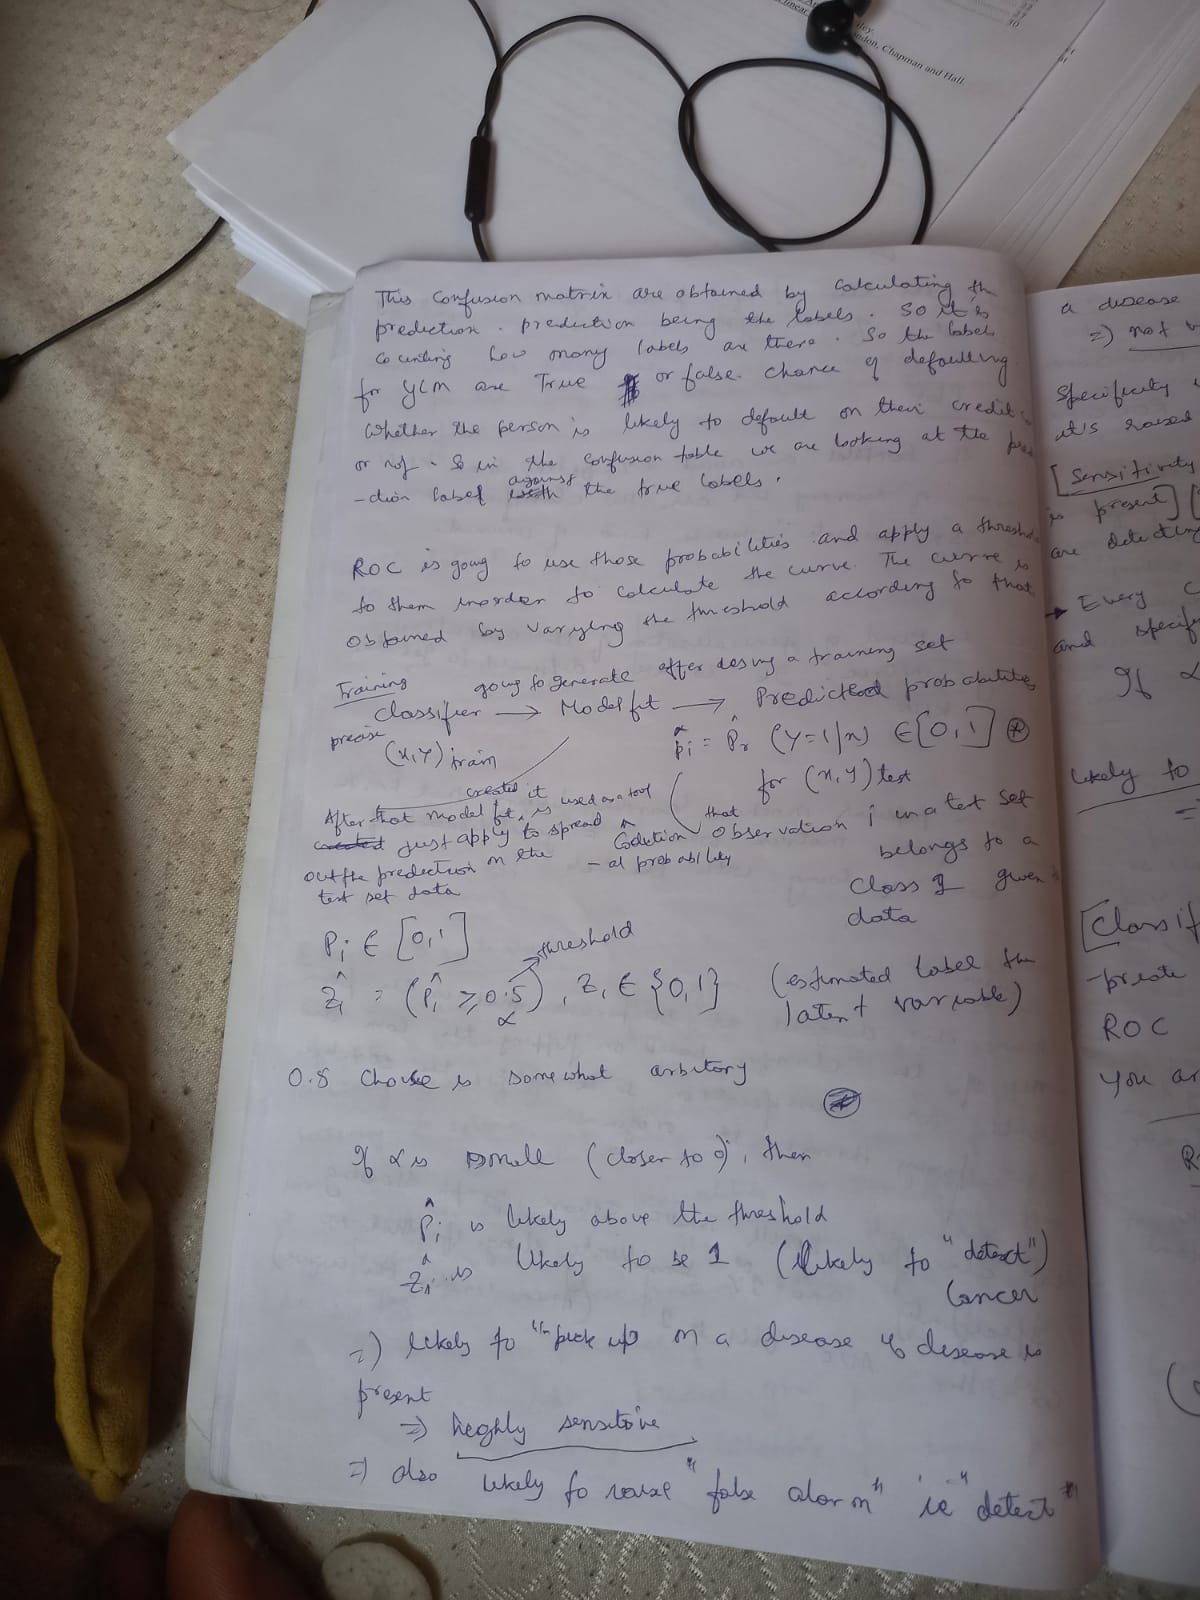 ley
ndon, Chapman and Hall.
linear
10
This confusion matrix are obtained by calculating the
prediction. prediction being the labels. So it is
counting how many labels are there. So the labels
for GLM are True or false. chance of defaulting
Whether the person is likely to default on their credit
or not. So in the confusion table we are looking at the pred
-tion label against the true labels.
ROC is going to use those probabilities and apply a threshol
to them inorder to calculate the curve. The curve is
obtained by varying the threshold according to that
Training going to generate after using a training set
Classifier → Model fit → Predicted probabilities
(x,y) train p̂i = P̂r (Y=1|x) ∈ [0,1] *
for (x,y) test
After that model fit, created it is used as a tool
just apply to spread
out the prediction on the
test set data
Codition
-al probability
that
observation i in a test set
belongs to a
class 1 given
data
Pi ∈ [0,1]
threshold
Ẑi = (P̂i ≥ 0.5), Zi ∈ {0,1} (estimated label the
α latent variable)
0.5 Choice is somewhat arbitory
If α is small (closer to 0), then
P̂i is likely above the threshold
Ẑi is likely to be 1 (likely to "detect")
Cancer
=) likely to "pick up" on a disease if disease is
present
=> highly sensitive
=> also likely to raise "false alarm" ie "detect"
a disease
=) not
Specificity
raised
[Sensitivity
is present]
are detecting
→ Every
and
If α
likely to
=
[Classif
ROC
You ar